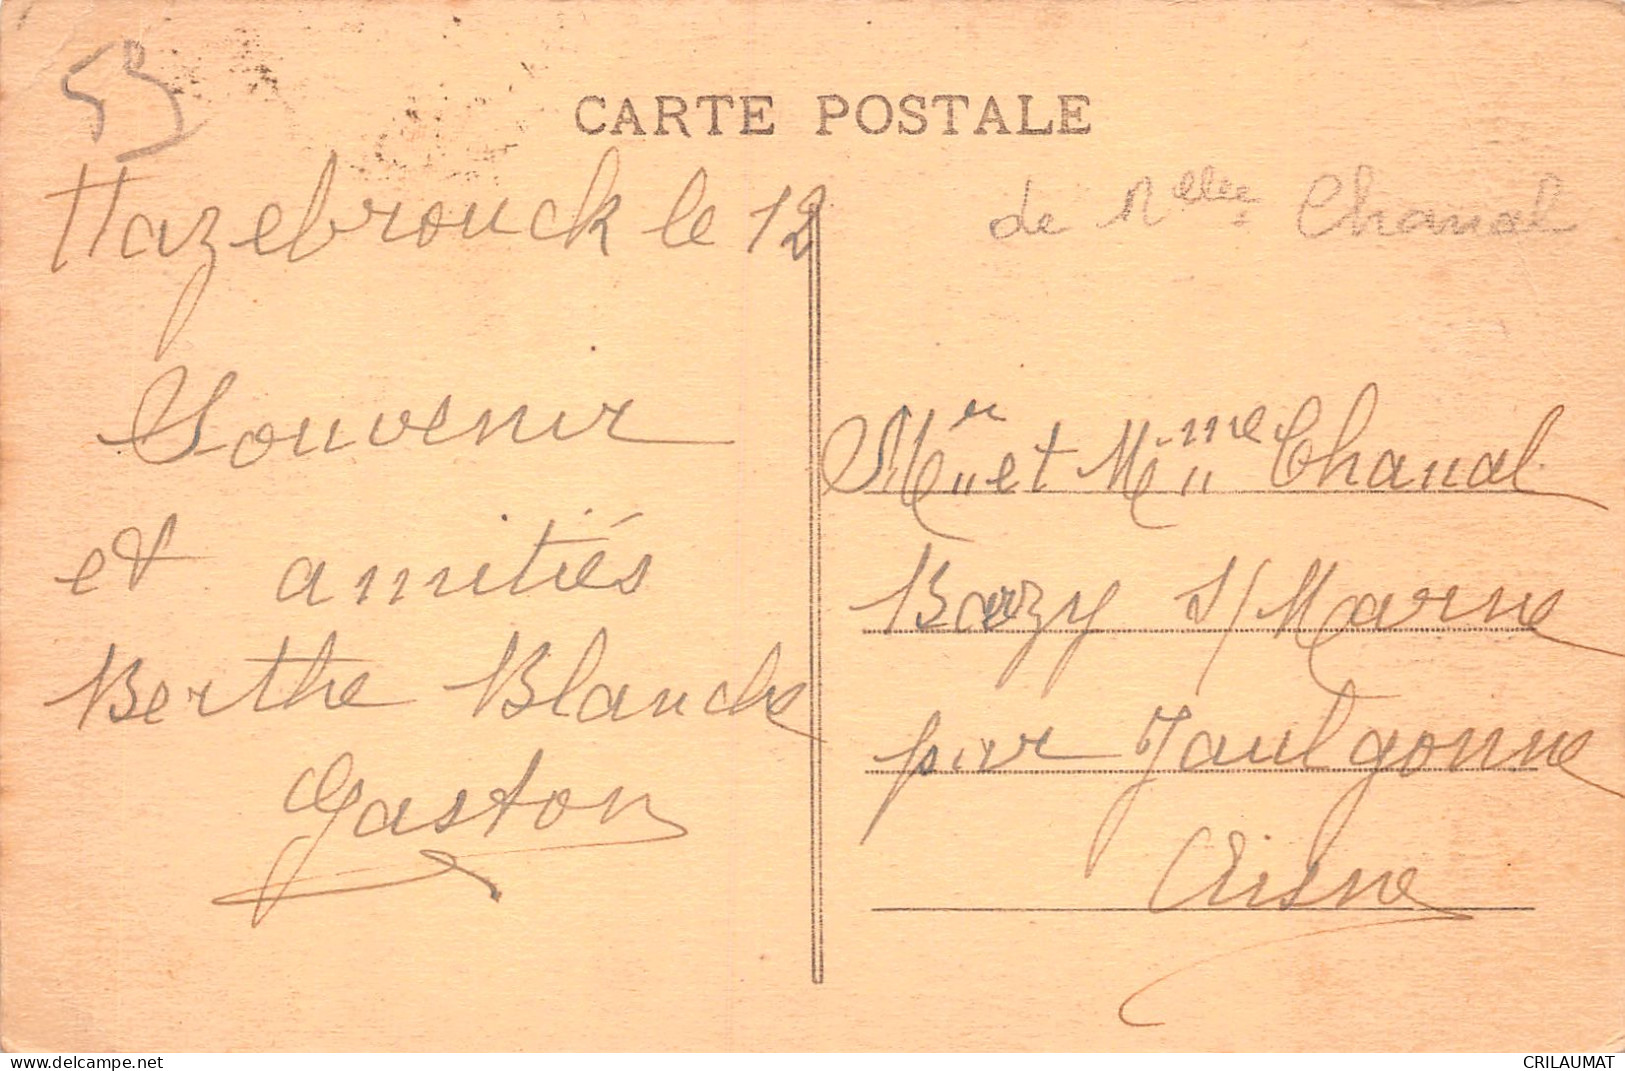 CARTE POSTALE
53
Hazebrouck le 12
Souvenir
et amitiés
Berthe Blanche
Gaston
de Chanal
Mr et Mme Chanal
Barzy s/Marne
par Jaulgonne
Aisne
www.delcampe.net
CRILAUMAT